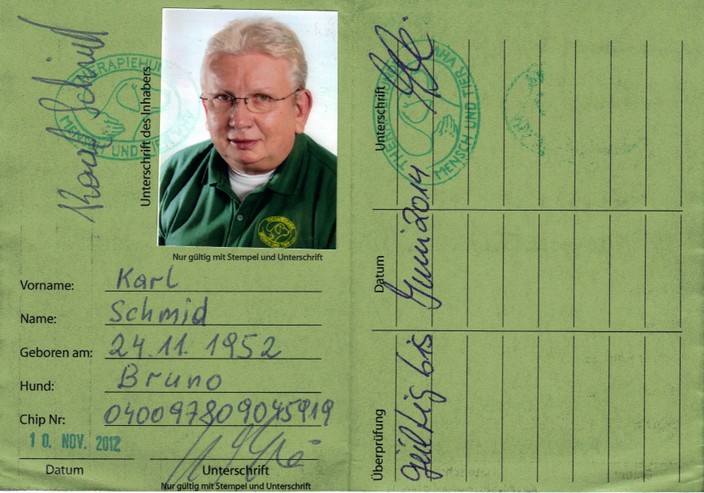 Karl Schmid
Unterschrift des Inhabers
Nur gültig mit Stempel und Unterschrift
Vorname: Karl
Name: Schmid
Geboren am: 24.11.1952
Hund: Bruno
Chip Nr: 040097809045919
10. NOV. 2012
Datum Unterschrift
Nur gültig mit Stempel und Unterschrift
Unterschrift
MENSCH UND TIER
Datum Juni 2014
Überprüfung gültig bis